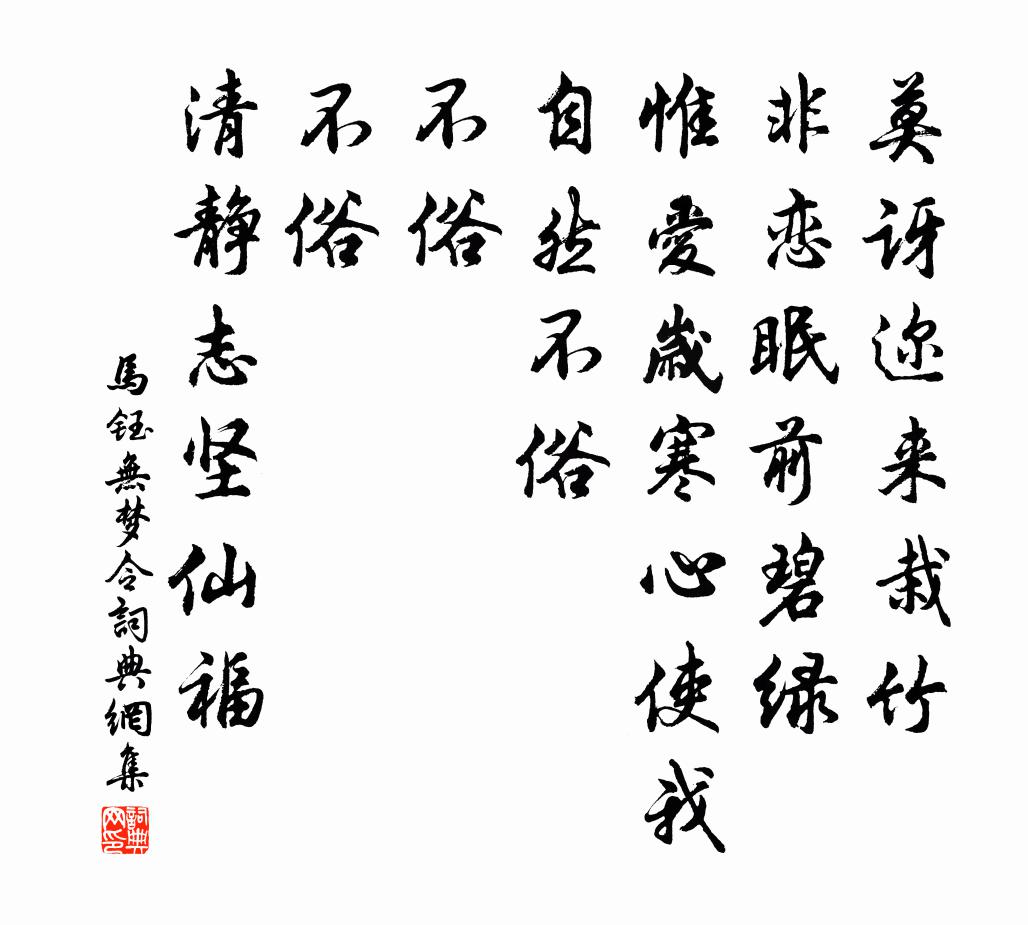 莫讶迩来栽竹
非恋眠前碧绿
惟爱岁寒心使我
自然不俗
不俗
不俗
清静志坚仙福
馬鈺無梦令詞典網集
詞典网印